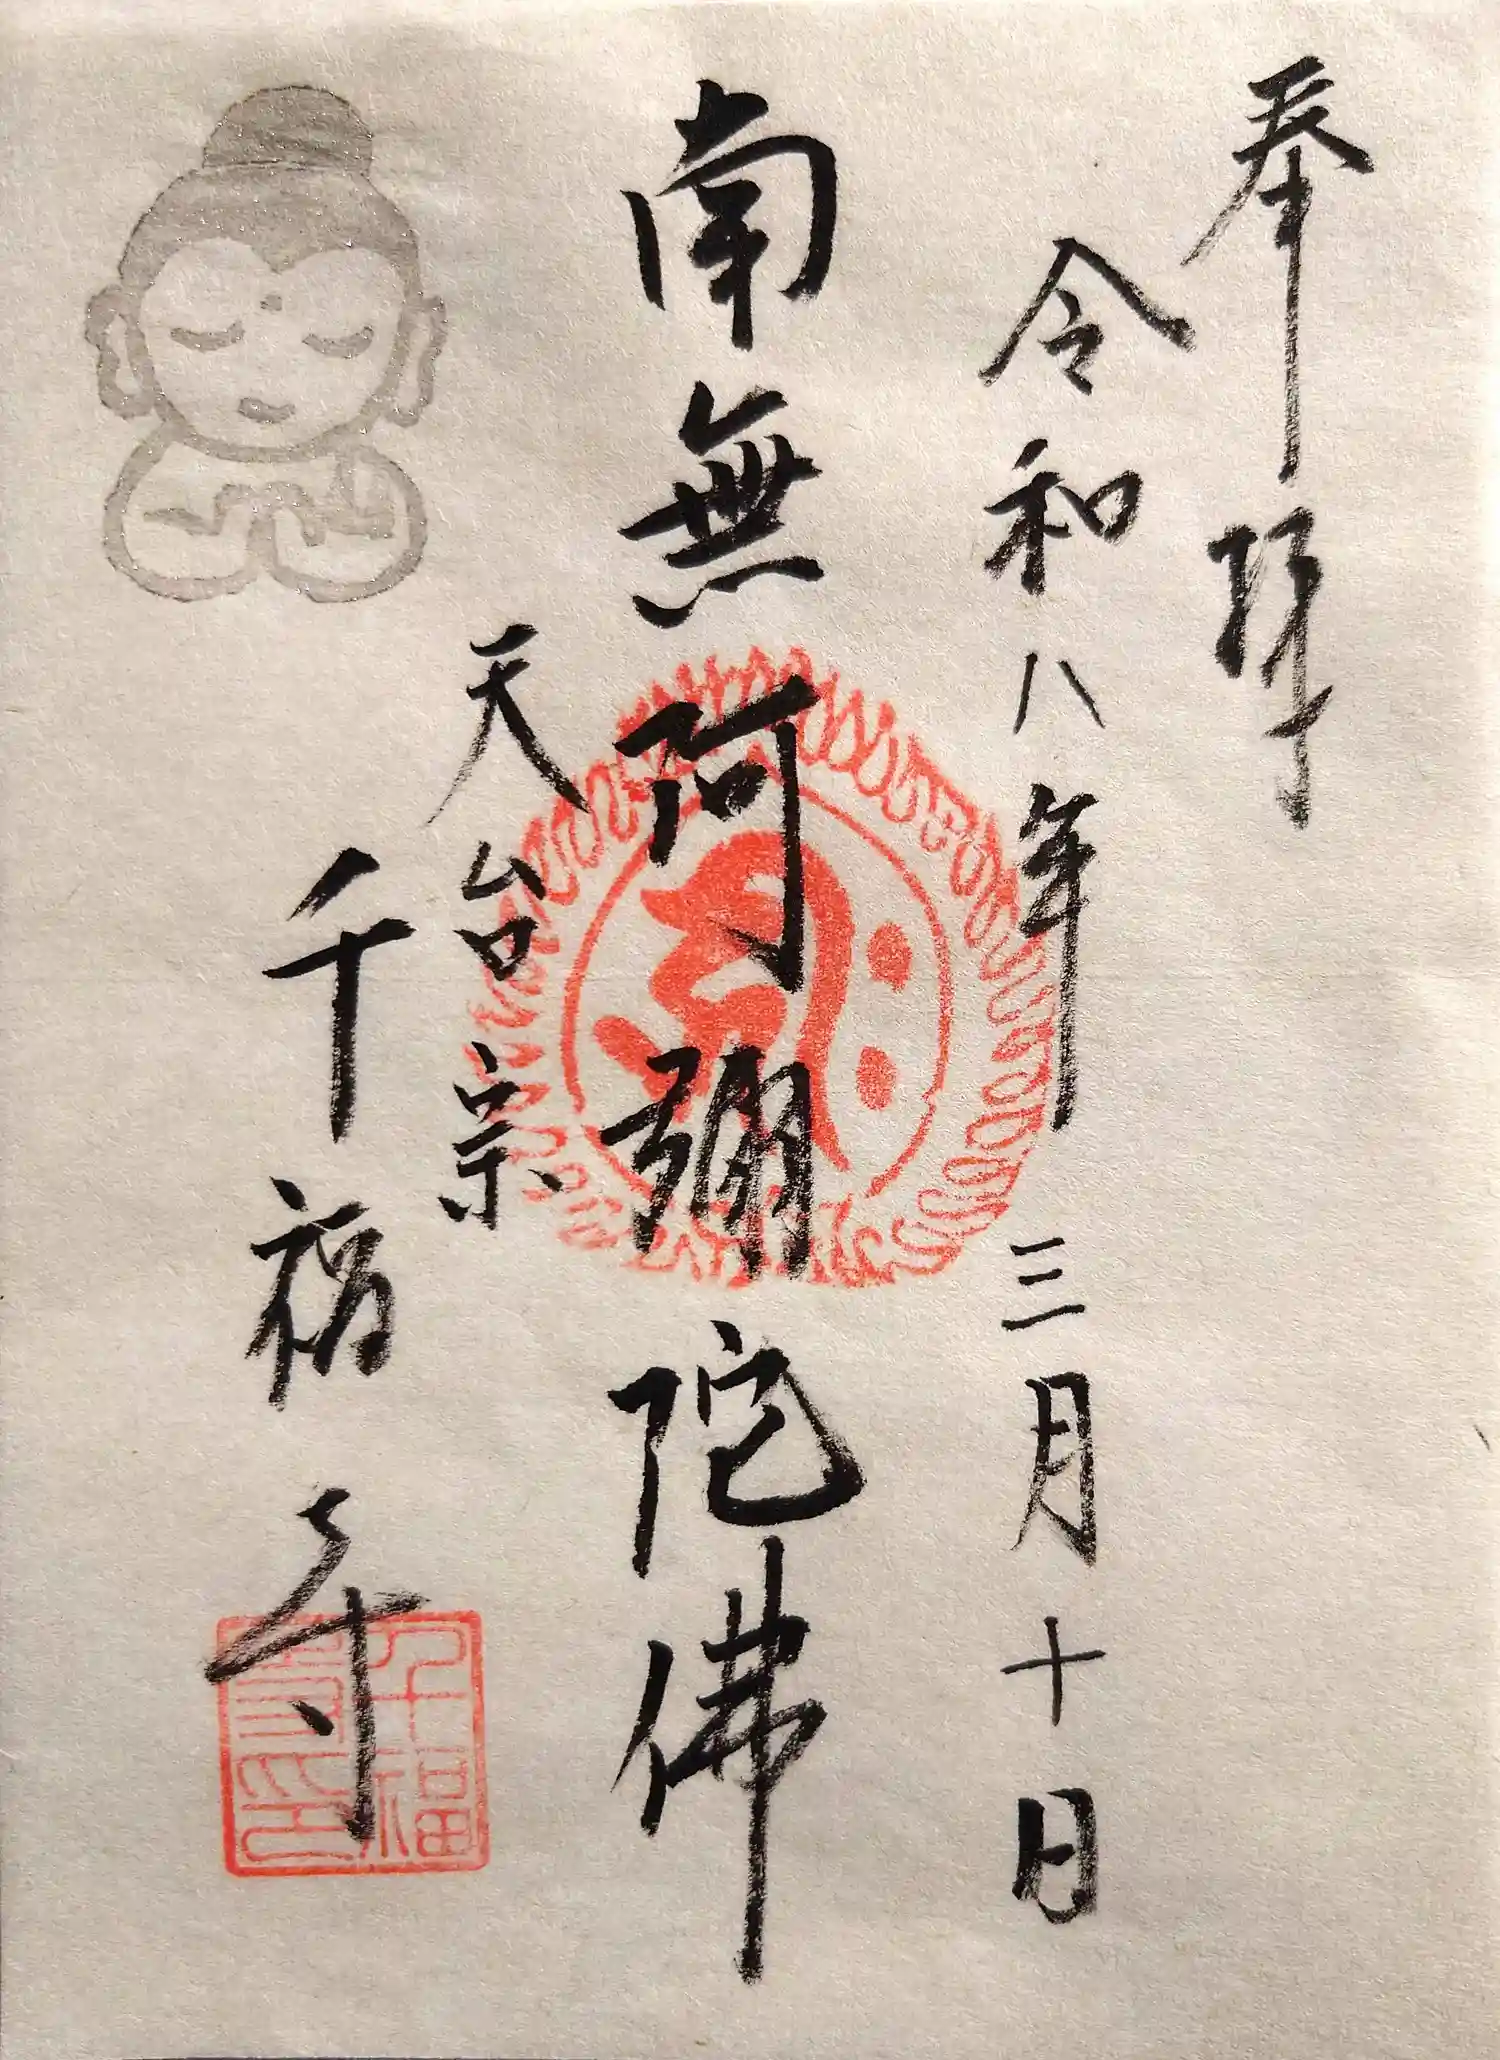 奉拝
令和八年 三月十日
南無阿彌陀佛
天台宗
千福寺
千福寺印